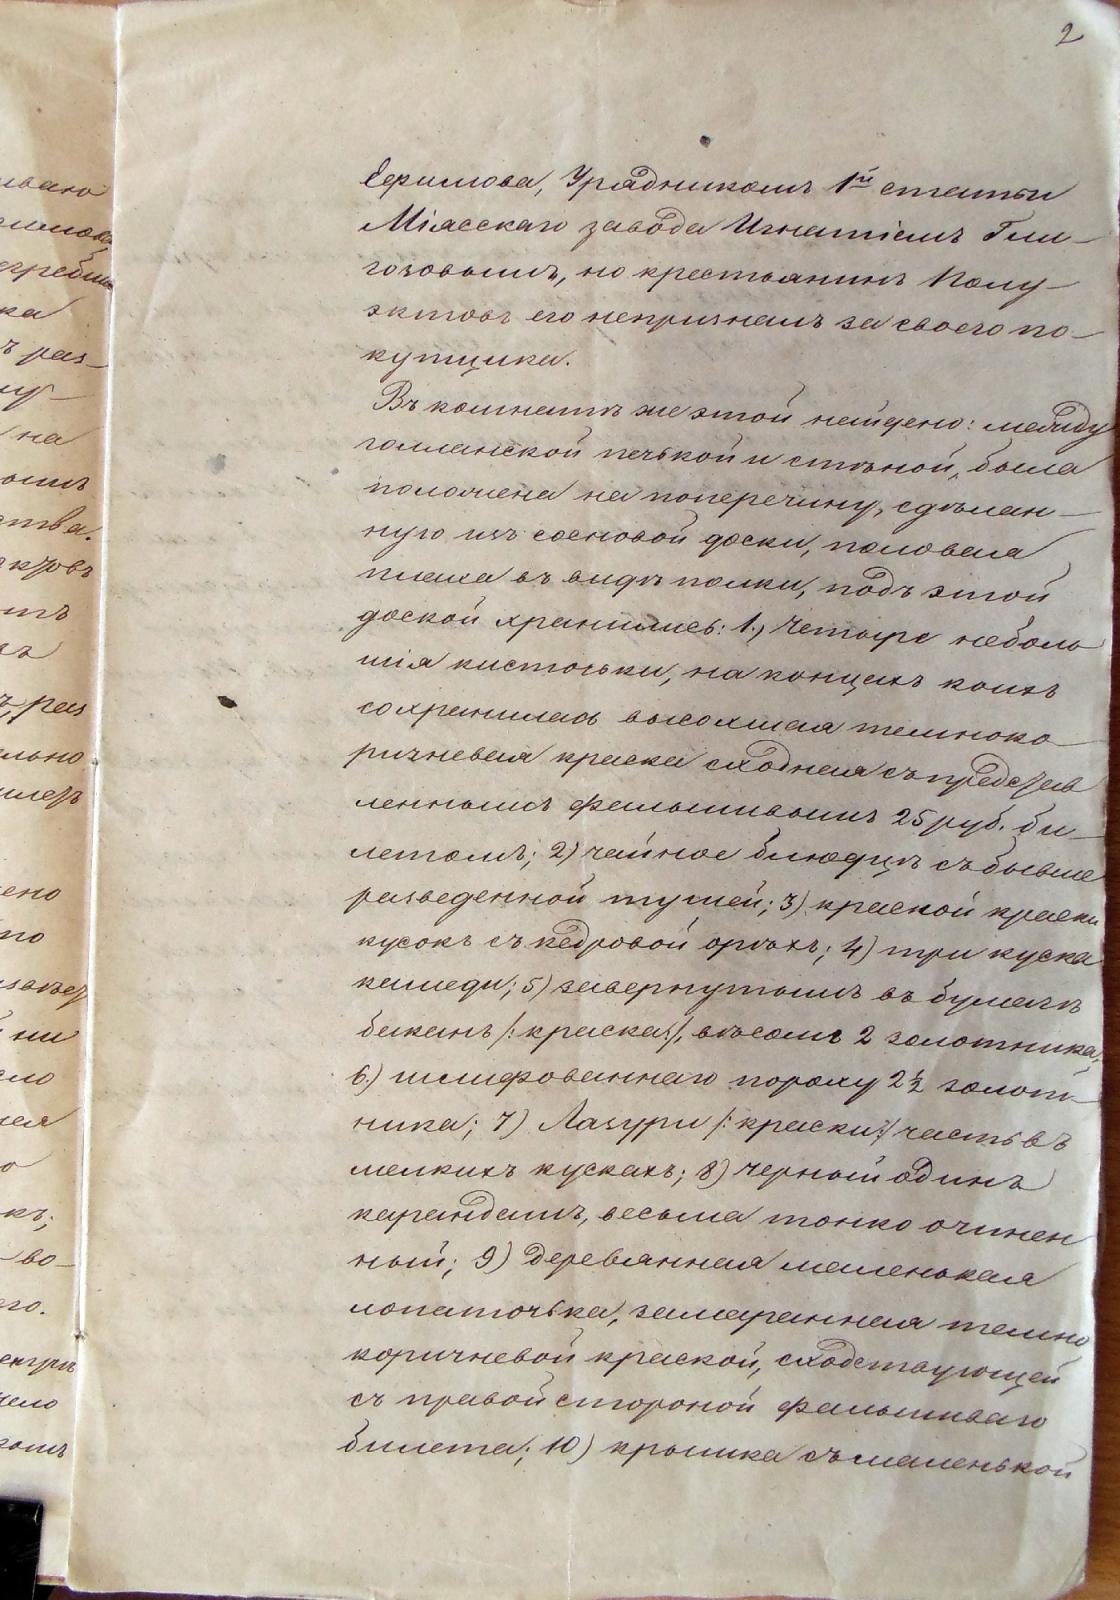 2
Ефимова, Урядникомъ 1й статьи
Міасскаго завода Игнатіемъ Гли-
гозовымъ, но крестьянинъ Полу-
эктовъ его непризналъ за своего по-
купщика.
Въ комнатѣ же этой найдено: между
голланской печькой и стѣной, была
положена на поперечину, сдѣлан-
ную изъ сосновой доски, половая
плаха въ видѣ полки, подъ этой
доской хранились: 1.) Четыре неболь
шія кисточьки, на концахъ коихъ
сохранилась высохшая темноко-
ричневая краска сходная съ представ
леннымъ фальшивымъ 25 руб. би-
летомъ; 2) чайное блюдцѣ съ бывше
разведенной тушей; 3) красной краски
кусокъ съ кедровой орѣхъ; 4) три куска
камеди; 5) завернутымъ въ бумагѣ
баканъ /: краска :/, вѣсомъ 2 золотника;
6.) шлифованнаго пороху 2½ золот-
ника; 7) Лазури /: краски :/ часть въ
мелкихъ кускахъ; 8) черный одинъ
карандашъ, весьма тонко очинен
ный; 9) деревянная маленькая
лопаточька, замаранная темно
коричневой краской, сходствующей
съ правой стороной фальшиваго
билета; 10) крышка съ маленькой